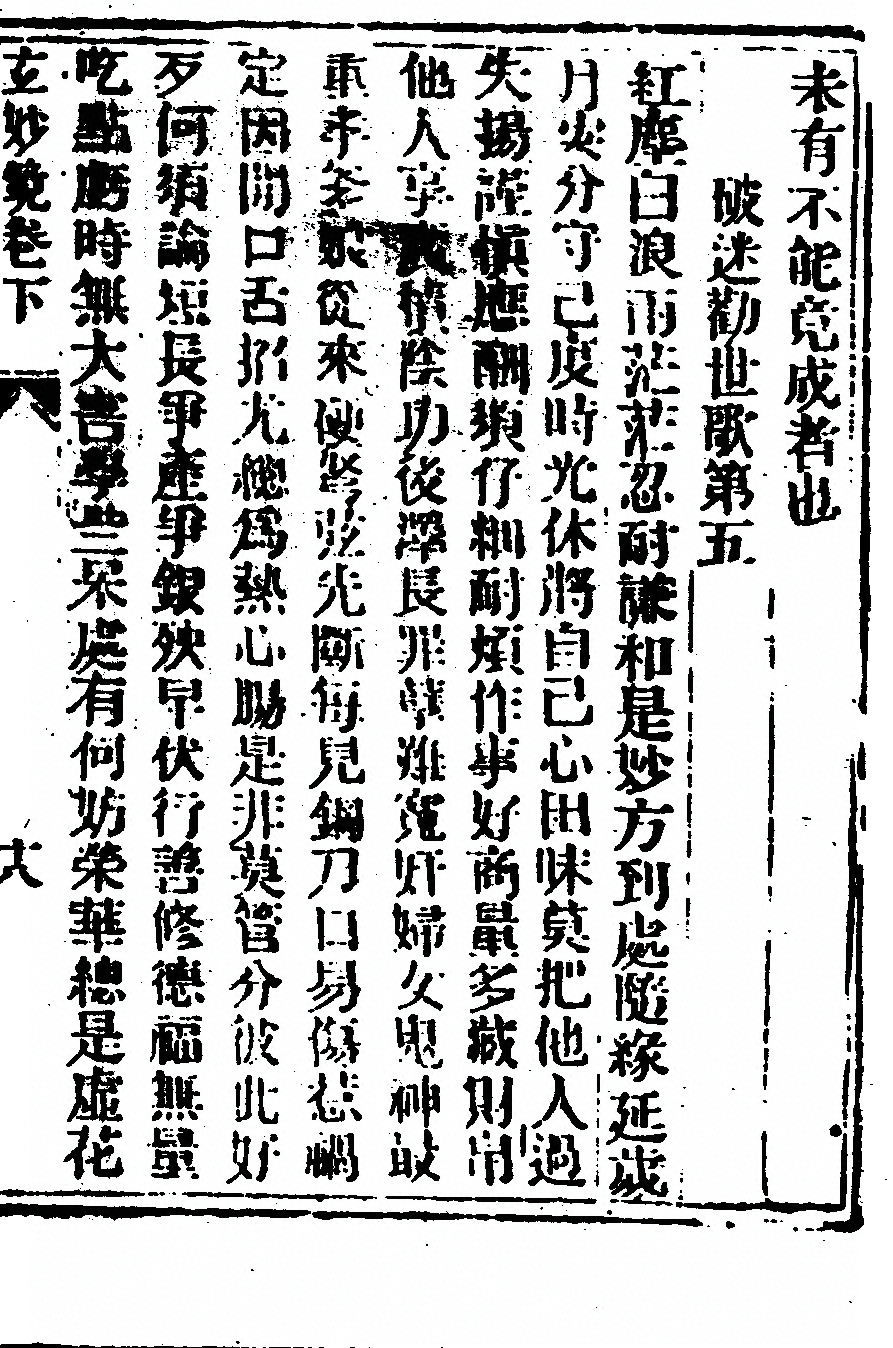 未有不能竟成者也
破迷勸世歌第五
紅塵白浪兩茫茫忍耐謙和是妙方到處隨緣延歲
月安分守己度時光休將自己心田昧莫把他人過
失揚謹慎應酬須仔細耐煩作事好商量多藏財帛
他人享積陰功後澤長罪孽難寬奸婦女鬼神最
重孝爹娘從來硬弩弦先斷每見鋼刀口易傷惹禍
定因開口舌招尤總爲熱心腸是非莫管分彼此好
歹何須論短長爭產爭銀殃早伏行善修德福無量
吃點虧時無大害學些呆處有何妨榮華總是虛花
玄妙鏡卷下
十八